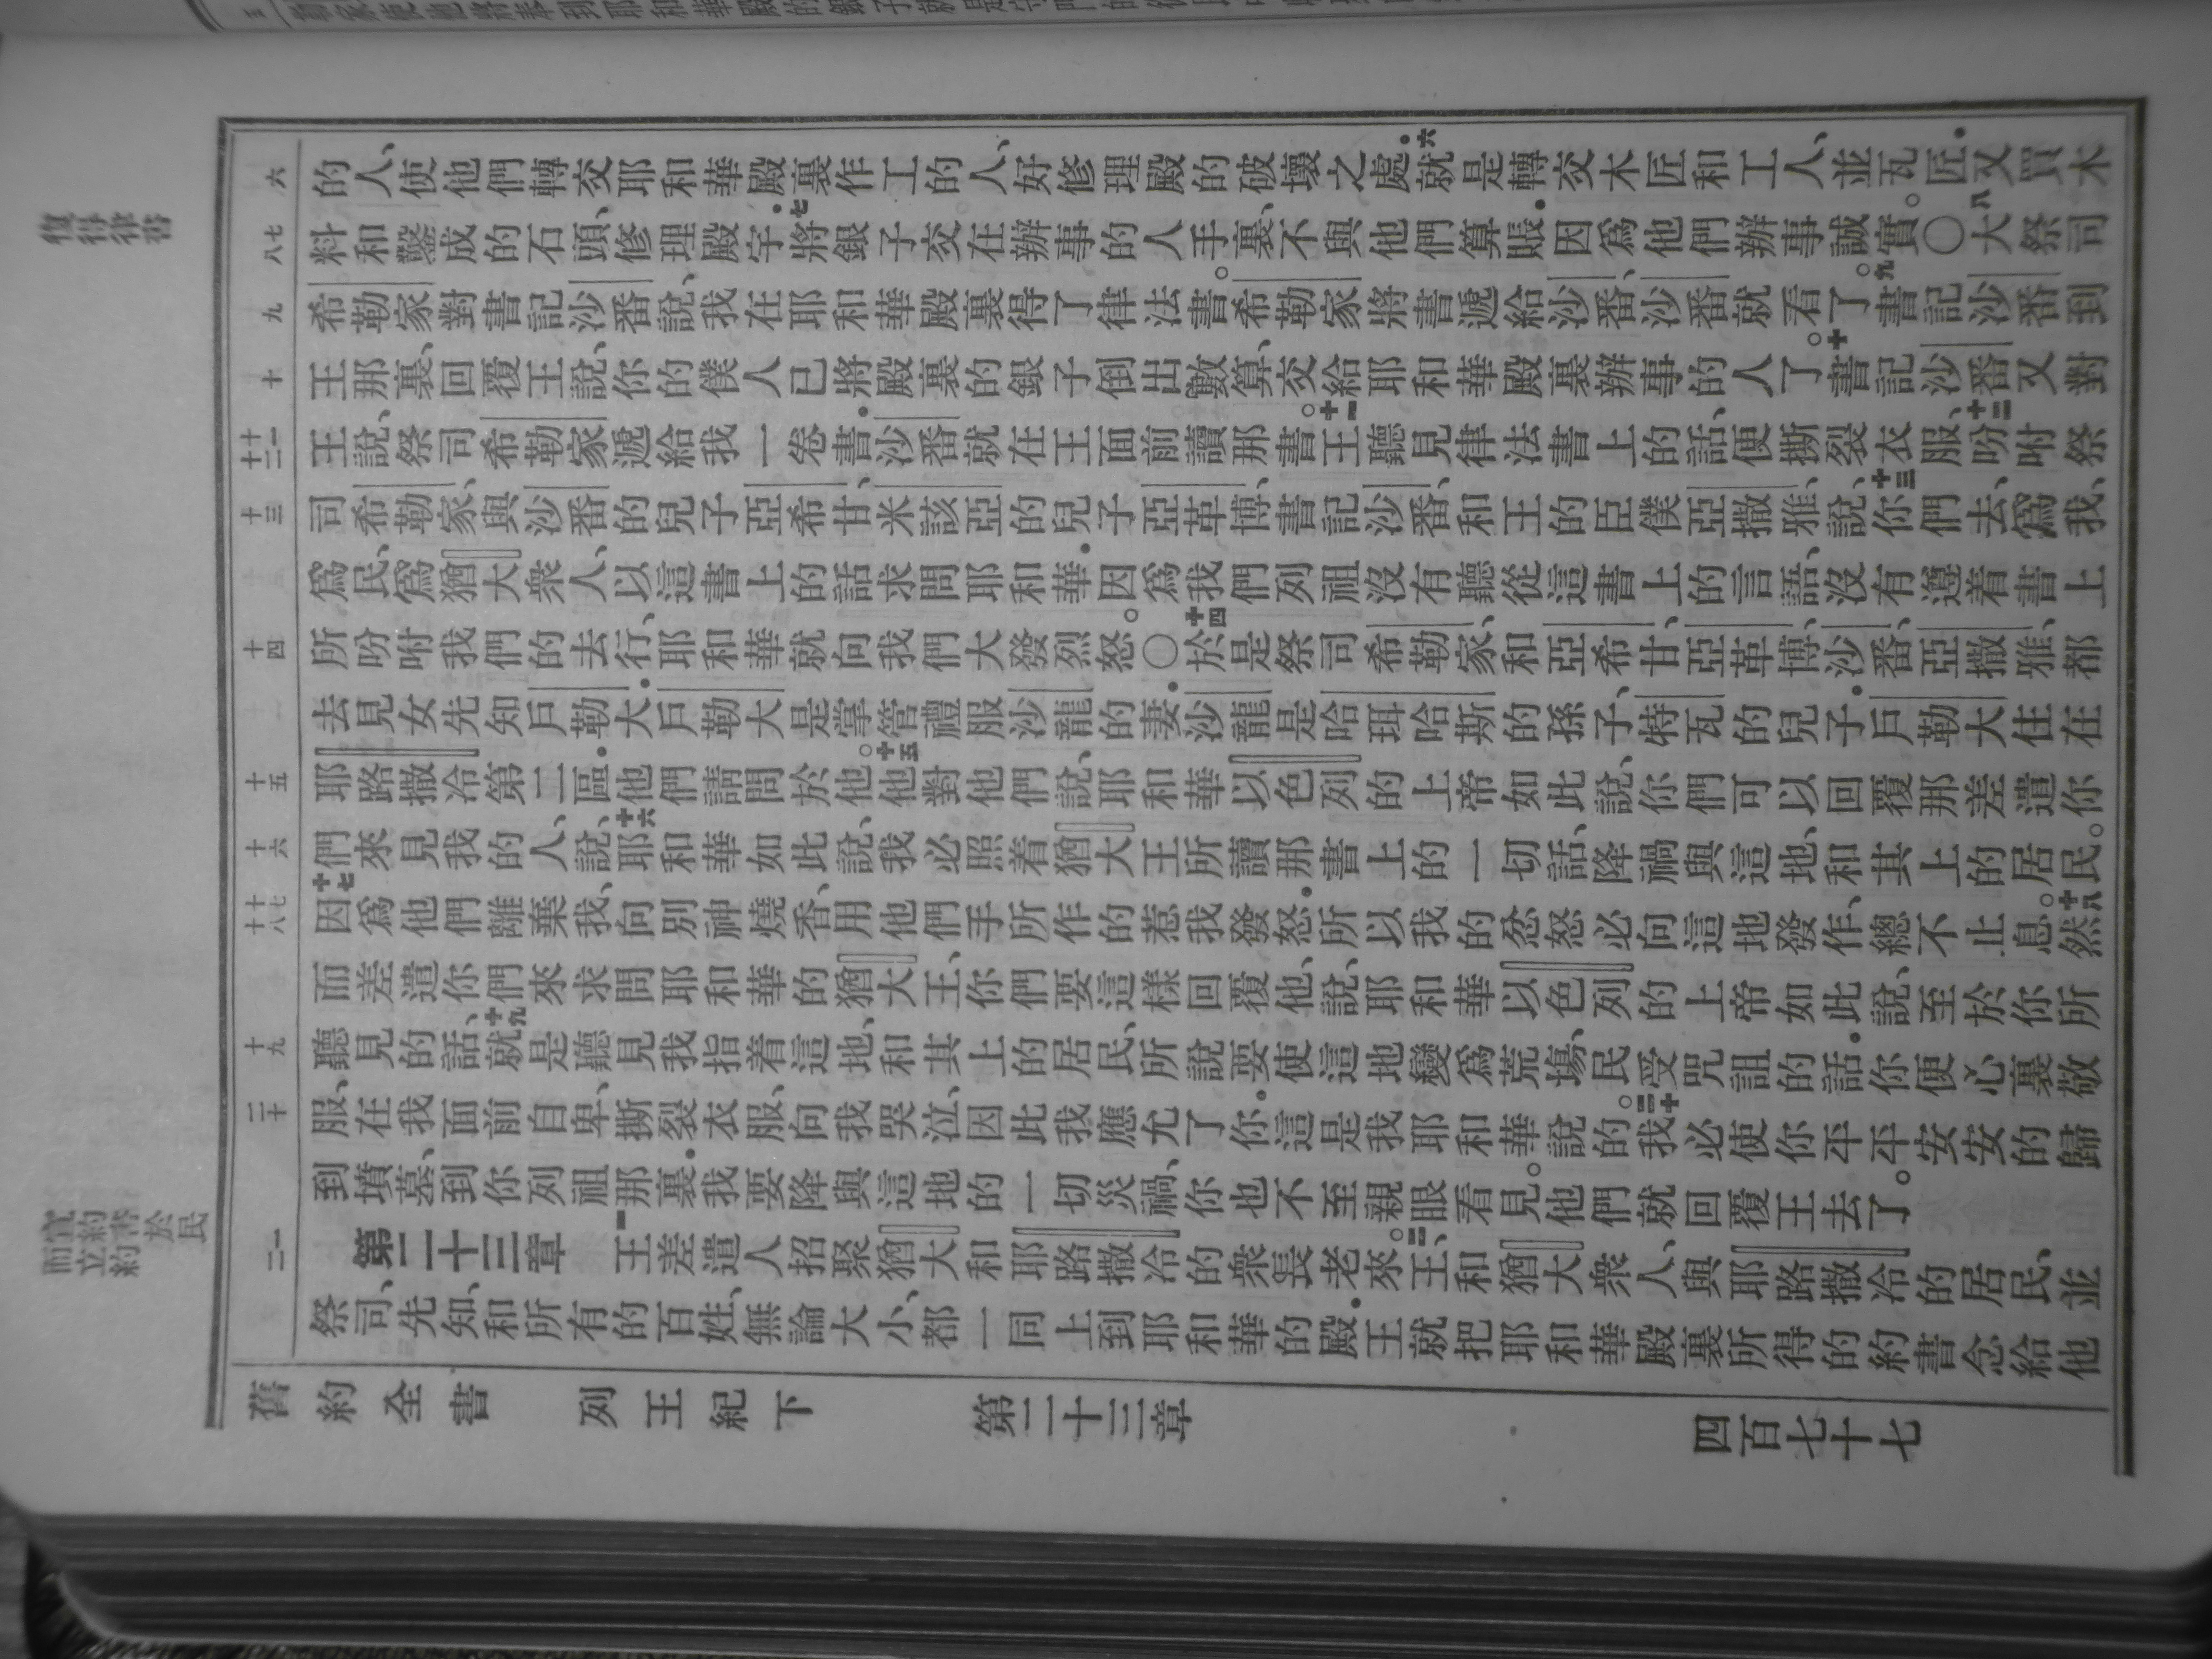 復得律書
宣約書於民
而立約
六
七
八
九
十
十一
十二
十三
十四
十五
十六
十七
十八
十九
二十
一
二
的人、使他們轉交耶和華殿裏作工的人、好修理殿的破壞之處.六就是轉交木匠和工人、並瓦匠.又買木
料和鑿成的石頭、修理殿宇.七將銀子交在辦事的人手裏、不與他們算賬.因爲他們辦事誠實。〇八大祭司
希勒家對書記沙番說、我在耶和華殿裏得了律法書。希勒家將書遞給沙番、沙番就看了。九書記沙番到
王那裏、回覆王說、你的僕人已將殿裏的銀子倒出數算、交給耶和華殿裏辦事的人了。十書記沙番又對
王說、祭司希勒家遞給我一卷書.沙番就在王面前讀那書。十一王聽見律法書上的話、便撕裂衣服、十二吩咐祭
司希勒家、與沙番的兒子亞希甘、米該亞的兒子亞革博、書記沙番、和王的臣僕亞撒雅、說、十三你們去、爲我、
爲民、爲猶大衆人、以這書上的話求問耶和華.因爲我們列祖沒有聽從這書上的言語、沒有遵着書上
所吩咐我們的去行、耶和華就向我們大發烈怒。〇十四於是祭司希勒家、和亞希甘、亞革博、沙番、亞撒雅、都
去見女先知戶勒大.戶勒大是掌管禮服沙龍的妻.沙龍是哈珥哈斯的孫子、特瓦的兒子.戶勒大住在
耶路撒冷第二區.他們請問於他。十五他對他們說、耶和華以色列的上帝如此說、你們可以回覆那差遣你
們來見我的人、說、十六耶和華如此說、我必照着猶大王所讀那書上的一切話、降禍與這地、和其上的居民。
十七因爲他們離棄我、向別神燒香、用他們手所作的惹我發怒.所以我的忿怒必向這地發作、總不止息。十八然
而差遣你們來求問耶和華的猶大王、你們要這樣回覆他、說、耶和華以色列的上帝如此說、至於你所
聽見的話、十九就是聽見我指着這地、和其上的居民、所說要使這地變爲荒場、民受咒詛的話.你便心裏敬
服、在我面前自卑、撕裂衣服、向我哭泣、因此我應允了你.這是我耶和華說的。二十我必使你平平安安的歸
到墳墓、到你列祖那裏.我要降與這地的一切災禍、你也不至親眼看見。他們就回覆王去了。
第二十三章 一王差遣人招聚猶大和耶路撒冷的衆長老來。二王、和猶大衆人、與耶路撒冷的居民、並
祭司、先知、和所有的百姓、無論大小、都一同上到耶和華的殿.王就把耶和華殿裏所得的約書念給他
舊約全書 列王紀下 第二十三章 四百七十七